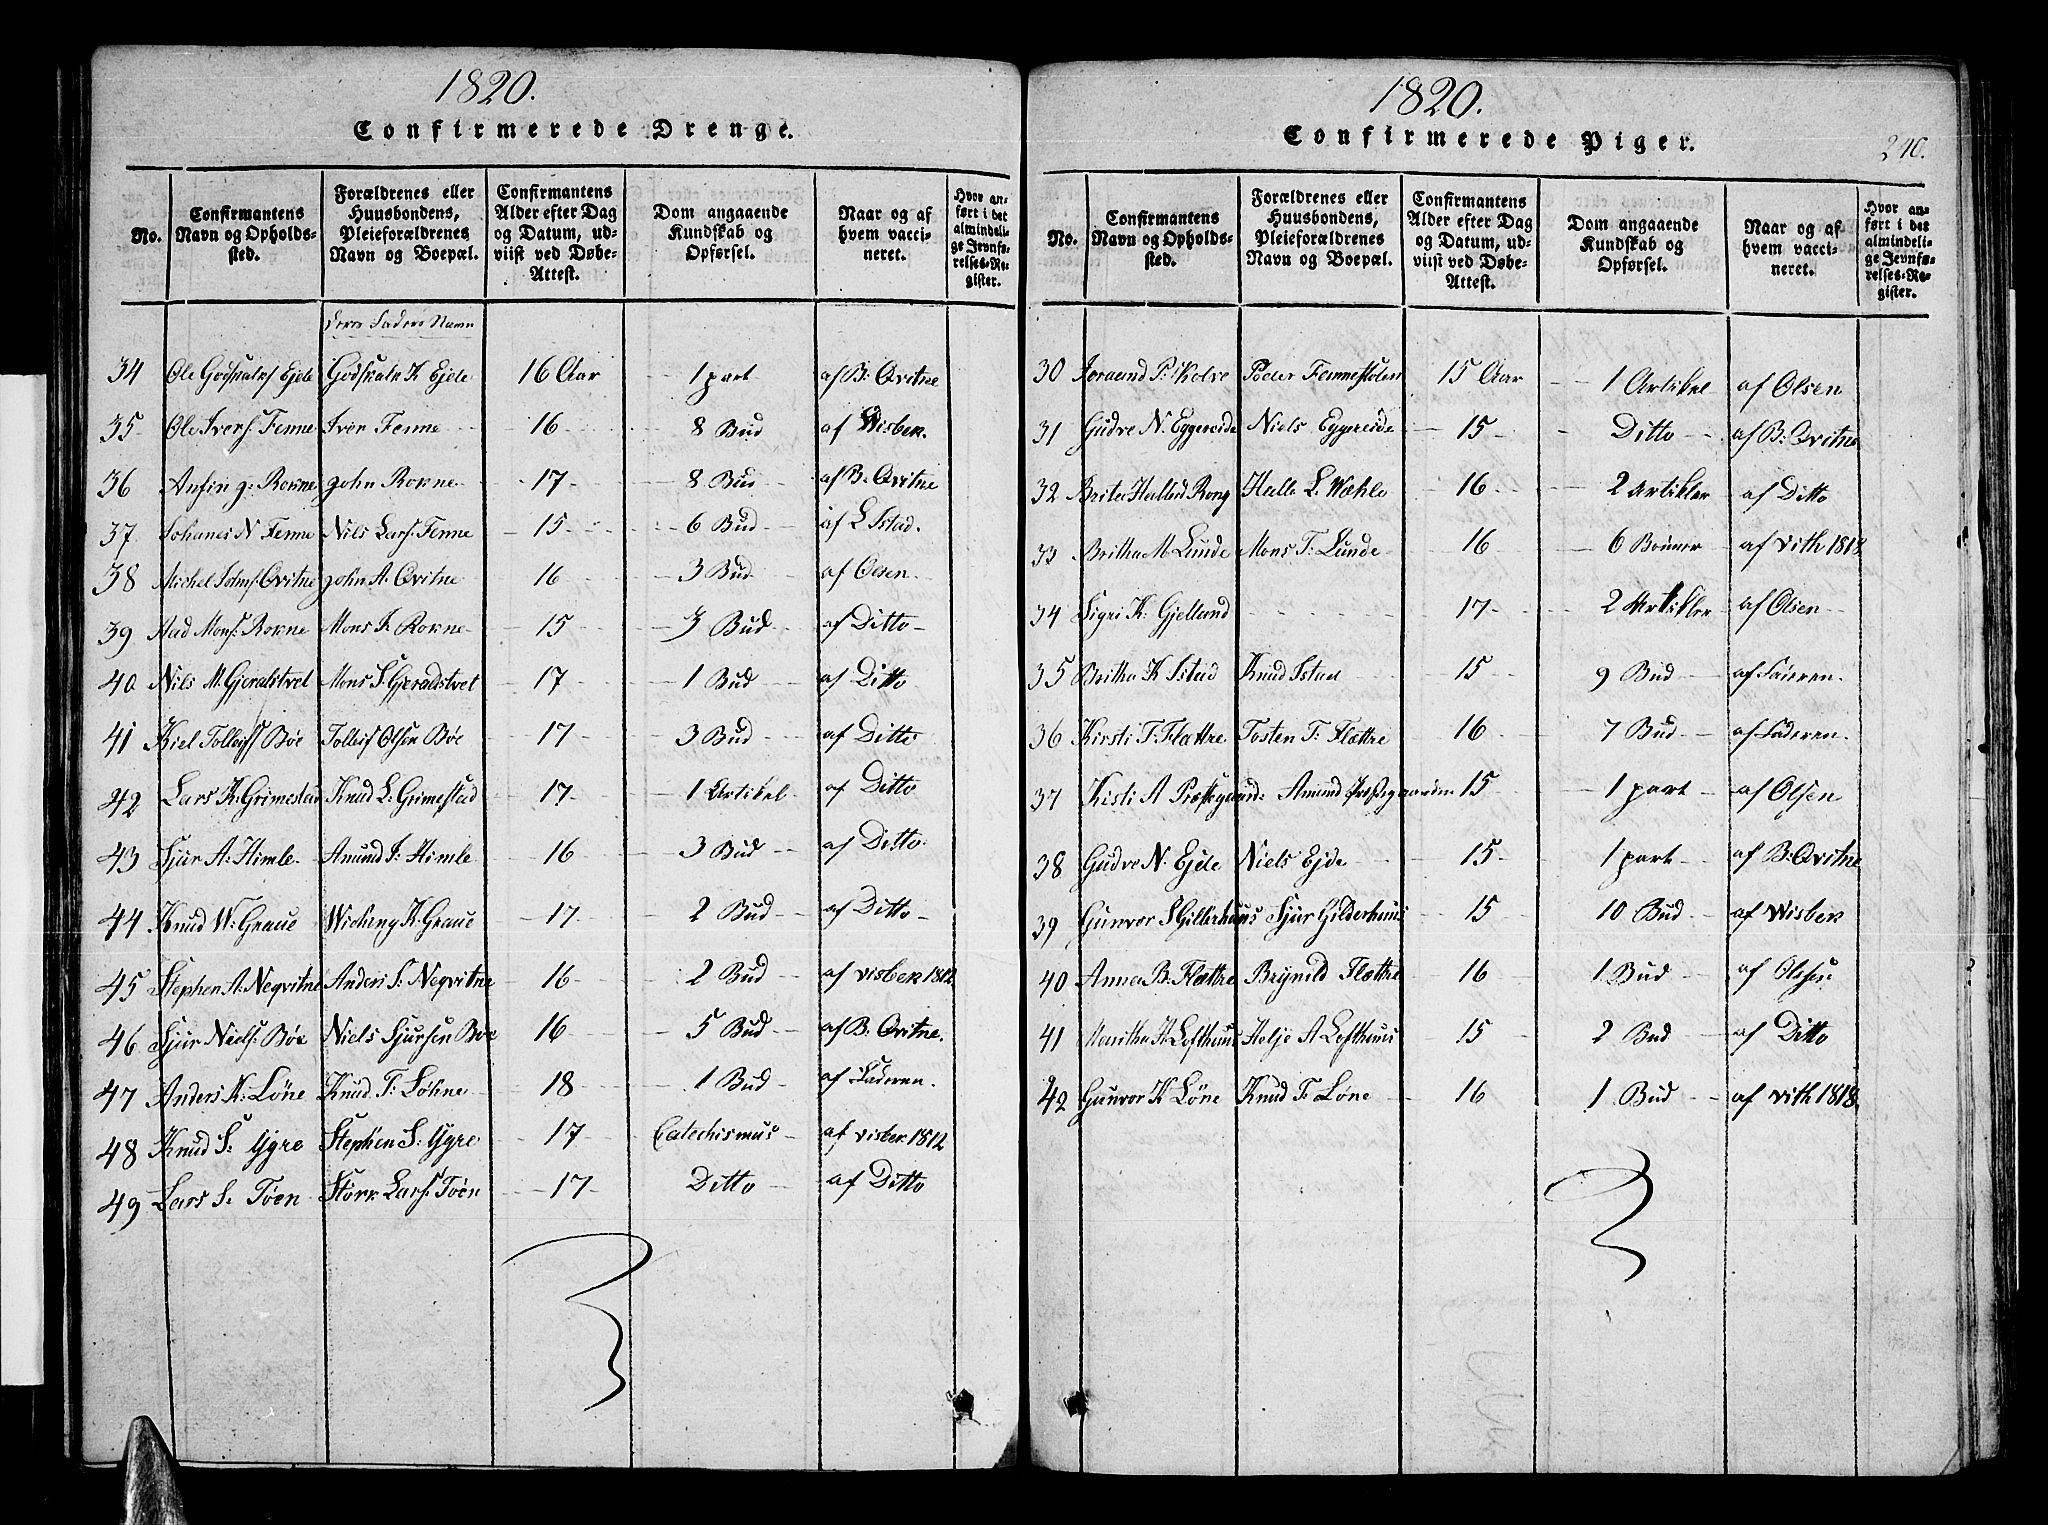 1820.
Confirmerede Drenge.
No.
Confirmantens Navn og Opholds-sted.
Forældrenes eller Huusbondens, Pleieforældrenes Navn og Boepæl.
Confirmantens Alder efter Dag og Datum, ud-viist ved Døbe-Attest.
Dom angaaende Kundskab og Opførsel.
Naar og af hvem vacci-neret.
Hvor an-ført i det almindeli-ge Jevnfø-relses-Re-gister.
Deres Faders Navn
34 Ole Godskalks Ejde Godskalk K Ejde 16 Aar 1 part af B: Qvitne
35 Ole Ivers: Fenne Iver Fenne 16 8 Bud af Wisbek.
36 Anfin J: Rokne John Rokne 17 8 Bud af B. Qvitne
37 Johanes N Fenne Nils Lars: Fenne 15 6 Bud af L Istad.
38 Michel Johns: Qvitne John A. Qvitne 16 3 Bud af Olsen
39 Aad Mons: Rokne Mons I: Rokne 15 3 Bud af Ditto
40 Nils M. Gjeralstvet Mons S Gjeralstvet 17 1 Bud af Ditto
41 Kiel Tolleifs Bøe Tolleif Olsen Bøe 17 3 Bud af Ditto
42 Lars K: Grimestad Knud L: Grimestad 17 1 Artikel af Ditto
43 Sjur A: Himle Amund S: Himle 16 3 Bud af Ditto
44 Knud W: Graue Wiching K Graue 17 2 Bud af Ditto
45 Stephen A: Neqvitne Anders S: Neqvitne 16 2 Bud af visbek 1812
46 Sjur Niels: Bøe Niels Sjursen Bøe 16 5 Bud af B: Qvitne.
47 Anders K: Løne Knud T: Løhne 18 1 Bud af Faderen.
48 Knud S: Ygre Stephen S: Ygre 17 Catechismus af visbek 1812
49 Lars S: Tøen Størk Lars: Tøen 17 Ditto af Ditto
1820.
Confirmerede Piger.
240.
No.
Confirmantens Navn og Opholds-sted.
Forældrenes eller Huusbondens, Pleieforældrenes Navn og Boepæl.
Confirmantens Alder efter Dag og Datum, ud-viist ved Døbe-Attest.
Dom angaaende Kundskab og Opførsel.
Naar og af hvem vacci-neret.
Hvor an-ført i det almindeli-ge Jevnfø-relses-Re-gister.
30 P: Skelve Peder Femmestølen 15 Aar 1 Artikel af Olsen
31 Gudve N. Eggereide Niels Eggereide 15 Ditto af B: Qvitne
32 Rong Halle L. Wæhle 16 2 Artikler af Ditto
33 Britha M. Lunde Mons T: Lunde 16 6 Bønner af vith 1818
34 Sigri K: Gjelland 17 2 Artikler af Olsen
35 Britha K Istad Knud Istad 15 9 Bud af Faderen.
36 Kirsti T: Flættre Tosten T: Flættre 16 7 Bud af Faderen.
37 Kisti A Præstegaard: Amund 15 1 part af Olsen
38 Gudve N: Ejde Niels Ejde 15 1 part af B: Qvitne
39 Gunvor S Gilderhuus Sjur Gilderhuus 15 10 Bud af Wisbek
40 Anna B: Flættre Brynild Flættre 16 1 Bud af Olsen
41 H Lofthuus Helje A Lofthuus 15 2 Bud af Ditto
42 Gunvor K Løne Knud T: Løne 16 1 Bud af vith 1818.